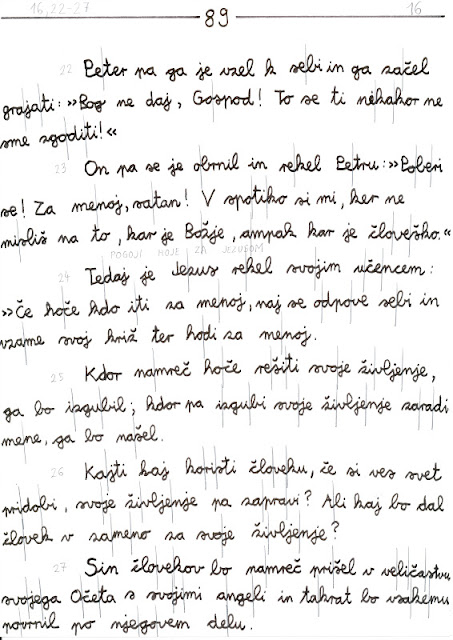 16,22-27 89 16
22 Peter pa ga je vzel k sebi in ga začel
grajati: »Bog ne daj, Gospod! To se ti nikakor ne
sme zgoditi!«
23 On pa se je obrnil in rekel Petru: »Poberi
se! Za menoj, satan! V spotiko si mi, ker ne
misliš na to, kar je Božje, ampak kar je človeško.«
POGOJI HOJE ZA JEZUSOM
24 Tedaj je Jezus rekel svojim učencem:
»Če hoče kdo iti za menoj, naj se odpove sebi in
vzame svoj križ ter hodi za menoj.
25 Kdor namreč hoče rešiti svoje življenje,
ga bo izgubil; kdor pa izgubi svoje življenje zaradi
mene, ga bo našel.
26 Kajti kaj koristi človeku, če si ves svet
pridobi, svoje življenje pa zapravi? Ali kaj bo dal
človek v zameno za svoje življenje?
27 Sin človekov bo namreč prišel v veličastvu
svojega Očeta s svojimi angeli in takrat bo vsakemu
povrnil po njegovem delu.